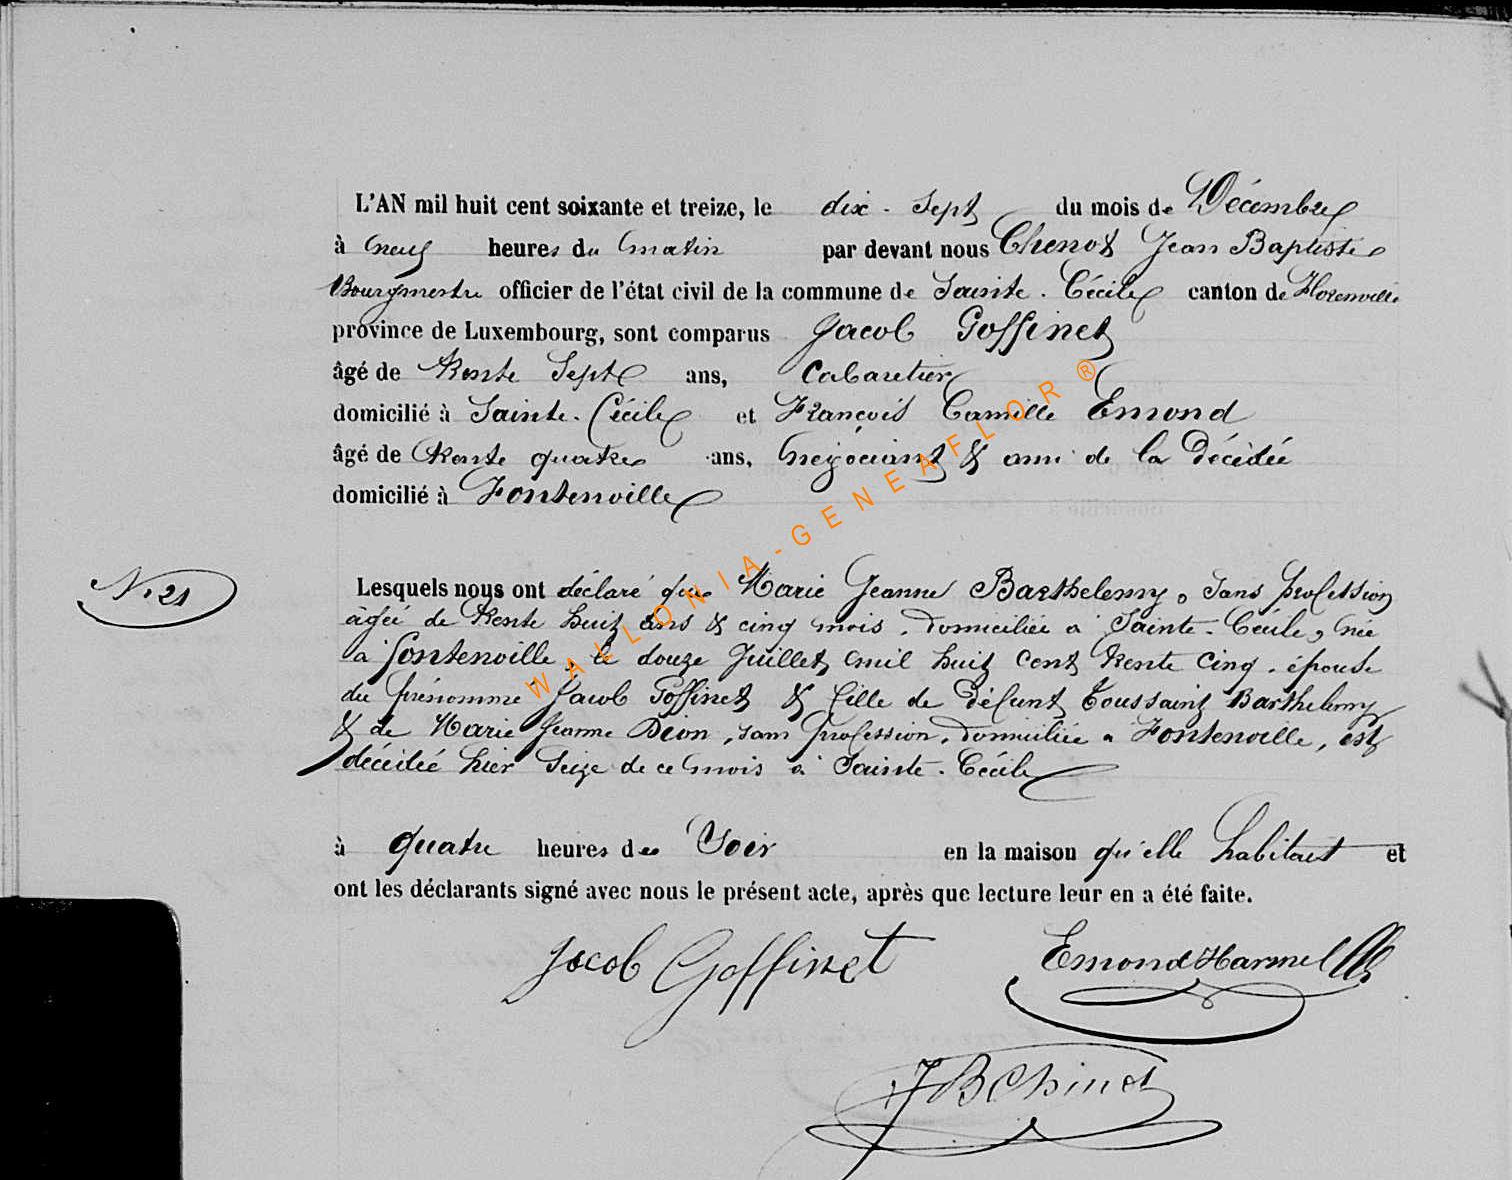 L'AN mil huit cent soixante et treize, le dix-sept du mois de Décembre
à neuf heures du matin par devant nous Chenot Jean Baptiste
Bourgmestre officier de l'état civil de la commune de Sainte-Cécile canton de Florenville
province de Luxembourg, sont comparus Jacob Goffinet
âgé de trente sept ans, Cabaretier
domicilié à Sainte-Cécile et François Camille Emond
âgé de trente quatre ans, négociant & ami de la Décédée
domicilié à Fontenville
N. 21
Lesquels nous ont déclaré que Marie Jeanne Barthelemy, Sans profession
âgée de trente huit ans & cinq mois, domiciliée à Sainte-Cécile, née
à fontenville, le douze Juillet mil huit cent trente cinq, épouse
du prénommé Jacob Goffinet & fille de défunt Toussaint Barthelemy
& de Marie Jeanne Dion, sans profession, domiciliée à Fontenville, est
décédée hier Seize de ce mois à Sainte-Cécile
à quatre heures du Soir en la maison qu'elle habitait et
ont les déclarants signé avec nous le présent acte, après que lecture leur en a été faite.
Jacob Goffinet EmondHarmel
JBChinot
WALLONIA-GENEAFLOR®